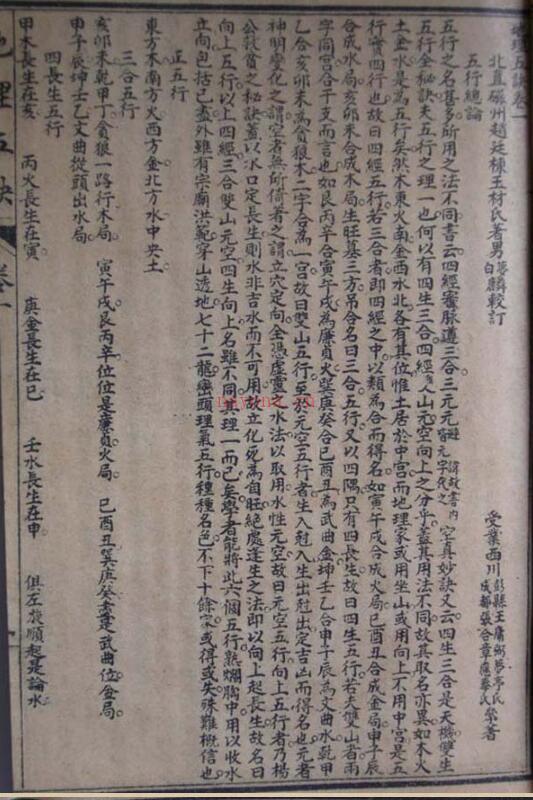 理五訣卷一
北直磁州趙廷棟玉材氏著男夢麟白麟較訂 受業西川彭縣王庸弼夢亭氏成都張含章應藜氏
五行總論
五行之名甚多所用之法不同書云四經審脉遵三合三元元避諱故書內皆元字代之空真妙訣又云四生三合是天機雙生
五行金秘訣夫五行之理一也何以有四生三合四經雙山元空向上之分乎蓋其用法不同故其取名亦異如木火
土金水是為五行矣然木東火南金西水北各有其位惟土居於中宮而地理家或用坐山或用向上不用中宮是五
行實四行也故曰四經五行若三合者即四經之中以類為合而得名如寅午戌合成火局巳酉丑合成金局申子辰
合成水局亥卯未合成木局生旺墓三方吊合名曰三合五行又以四隅只有四長生故曰四生五行若夫雙山者兩
字同宮合干支而言也如艮丙辛合寅午戌為廉貞火巽庚癸合巳酉丑為武曲金坤壬乙合申子辰為文曲水乾甲
合亥卯未為貪狼木二字合為一宮故曰雙山五行至於元空五行者生入尅入生出尅出定吉凶而得名也元者
神明變化之謂空者無所倚着之謂立穴定向全憑虛靈之水法以取用水性元空故曰元空五行向上五行者乃楊
公救貧之秘訣蓋以水口定長生則水非吉水而不可用故立化死為自旺絕處逢生之法即以向上起長生故名曰
向上五行以上四經三合雙山元空四生向上名雖不同其理一而已矣學者能將此六個五行熟爛胸中用以收水
立向包括已盡外雖有宗廟洪範穿山透地七十二龍巒頭理氣五行種種名色不下十餘家或得或失殊難概信也
正五行
東方木南方火西方金北方水中央土
三合五行
亥卯未乾甲丁貪狼一路行木局 寅午戌艮丙辛位位是廉貞火局 巳酉丑巽庚癸盡是武曲位金局
申子辰坤壬乙文曲從頭出水局
四長生五行
甲木長生在亥 丙火長生在寅 庚金長生在巳 壬水長生在申 俱左旋順起是論水
地理五訣 卷一